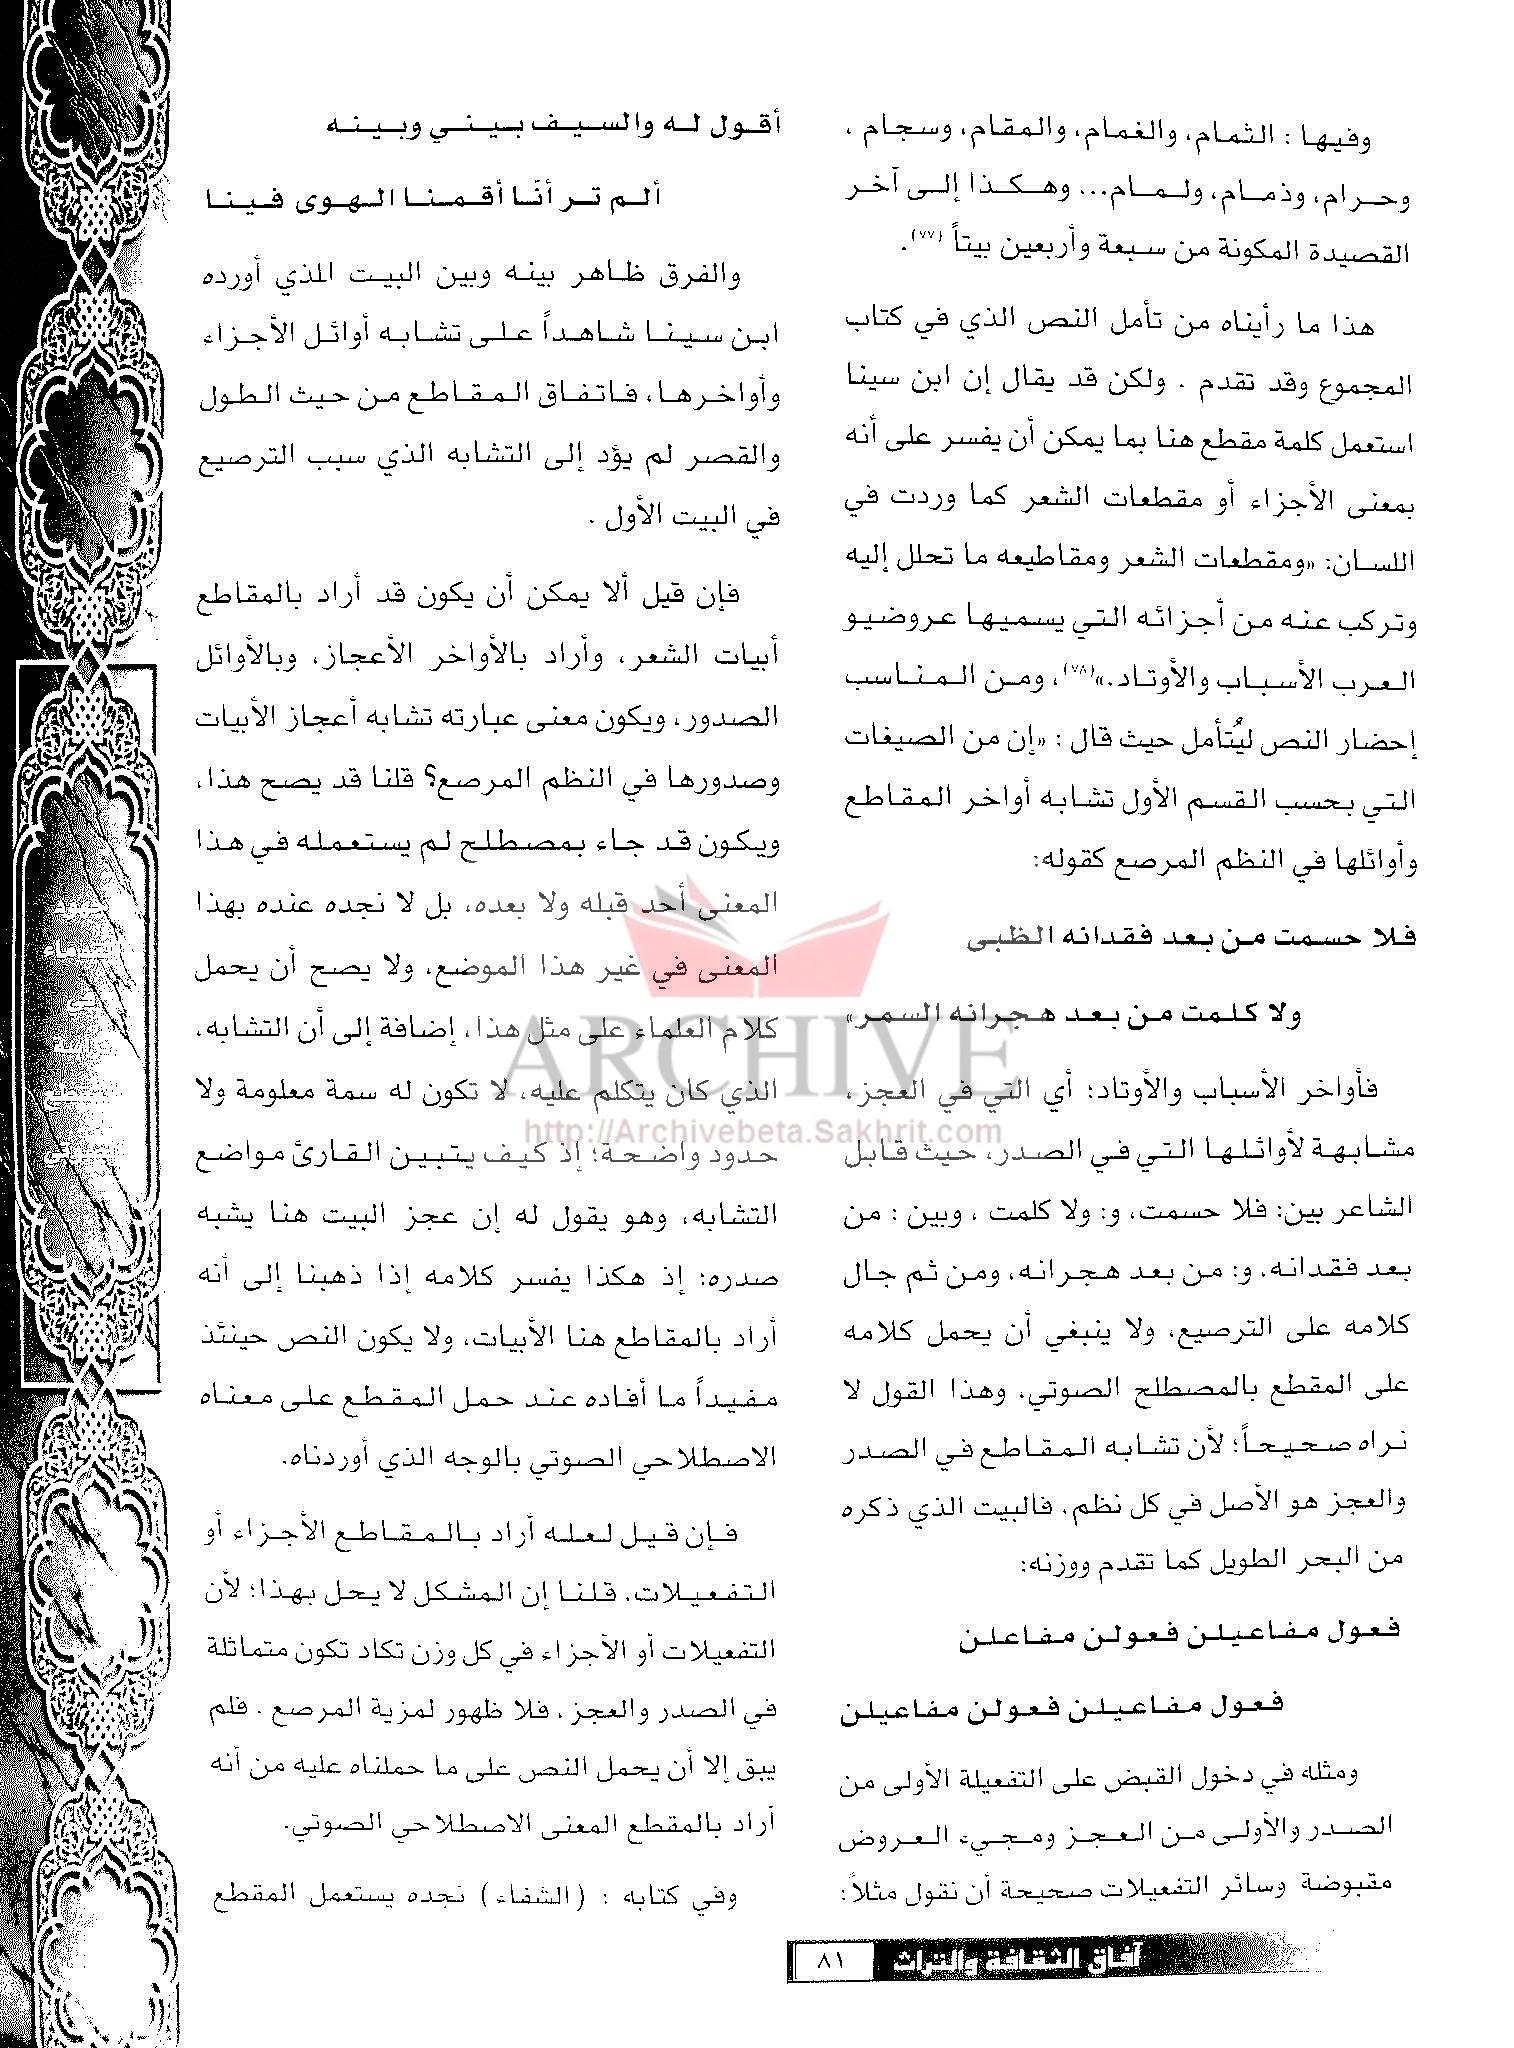 وفيها : الثمام، والغمام، والمقام، وسجام ،
وحرام، وذمام، ولمام... وهكذا إلى آخر
القصيدة المكونة من سبعة وأربعين بيتاً (٧٧).
هذا ما رأيناه من تأمل النص الذي في كتاب
المجموع وقد تقدم . ولكن قد يقال إن ابن سينا
استعمل كلمة مقطع هنا بما يمكن أن يفسر على أنه
بمعنى الأجزاء أو مقطعات الشعر كما وردت في
اللسان: «ومقطعات الشعر ومقاطيعه ما تحلل إليه
وتركب عنه من أجزائه التي يسميها عروضيو
العرب الأسباب والأوتاد.»(٧٨)، ومن المناسب
إحضار النص ليُتأمل حيث قال : «إن من الصيغات
التي بحسب القسم الأول تشابه أواخر المقاطع
وأوائلها في النظم المرصع كقوله:
فلا حسمت من بعد فقدانه الظبى
ولا كلمت من بعد هجرانه السمر»
فأواخر الأسباب والأوتاد: أي التي في العجز،
مشابهة لأوائلها التي في الصدر، حيث قابل
الشاعر بين: فلا حسمت، و: ولا كلمت ، وبين : من
بعد فقدانه، و: من بعد هجرانه، ومن ثم جال
كلامه على الترصيع، ولا ينبغي أن يحمل كلامه
على المقطع بالمصطلح الصوتي، وهذا القول لا
نراه صحيحاً؛ لأن تشابه المقاطع في الصدر
والعجز هو الأصل في كل نظم، فالبيت الذي ذكره
من البحر الطويل كما تقدم ووزنه:
فعول مفاعيلن فعولن مفاعلن
فعول مفاعيلن فعولن مفاعيلن
ومثله في دخول القبض على التفعيلة الأولى من
الصدر والأولى من العجز ومجيء العروض
مقبوضة وسائر التفعيلات صحيحة أن نقول مثلاً:
أقول له والسيف بيني وبينه
ألم تر أنّا أقمنا الهوى فينا
والفرق ظاهر بينه وبين البيت الذي أورده
ابن سينا شاهداً على تشابه أوائل الأجزاء
وأواخرها، فاتفاق المقاطع من حيث الطول
والقصر لم يؤد إلى التشابه الذي سبب الترصيع
في البيت الأول .
فإن قيل ألا يمكن أن يكون قد أراد بالمقاطع
أبيات الشعر، وأراد بالأواخر الأعجاز، وبالأوائل
الصدور، ويكون معنى عبارته تشابه أعجاز الأبيات
وصدورها في النظم المرصع؟ قلنا قد يصح هذا،
ويكون قد جاء بمصطلح لم يستعمله في هذا
المعنى أحد قبله ولا بعده، بل لا نجده عنده بهذا
المعنى في غير هذا الموضع، ولا يصح أن يحمل
كلام العلماء على مثل هذا، إضافة إلى أن التشابه،
الذي كان يتكلم عليه، لا تكون له سمة معلومة ولا
حدود واضحة؛ إذ كيف يتبين القارئ مواضع
التشابه، وهو يقول له إن عجز البيت هنا يشبه
صدره؛ إذ هكذا يفسر كلامه إذا ذهبنا إلى أنه
أراد بالمقاطع هنا الأبيات، ولا يكون النص حينئذ
مفيداً ما أفاده عند حمل المقطع على معناه
الاصطلاحي الصوتي بالوجه الذي أوردناه.
فإن قيل لعله أراد بالمقاطع الأجزاء أو
التفعيلات، قلنا إن المشكل لا يحل بهذا؛ لأن
التفعيلات أو الأجزاء في كل وزن تكاد تكون متماثلة
في الصدر والعجز ، فلا ظهور لمزية المرصع . فلم
يبق إلا أن يحمل النص على ما حملناه عليه من أنه
أراد بالمقطع المعنى الاصطلاحي الصوتي.
وفي كتابه : (الشفاء) نجده يستعمل المقطع
ARCHIVE
http://Archivebeta.Sakhrit.com
آفاق الثقافة والتراث ٨١